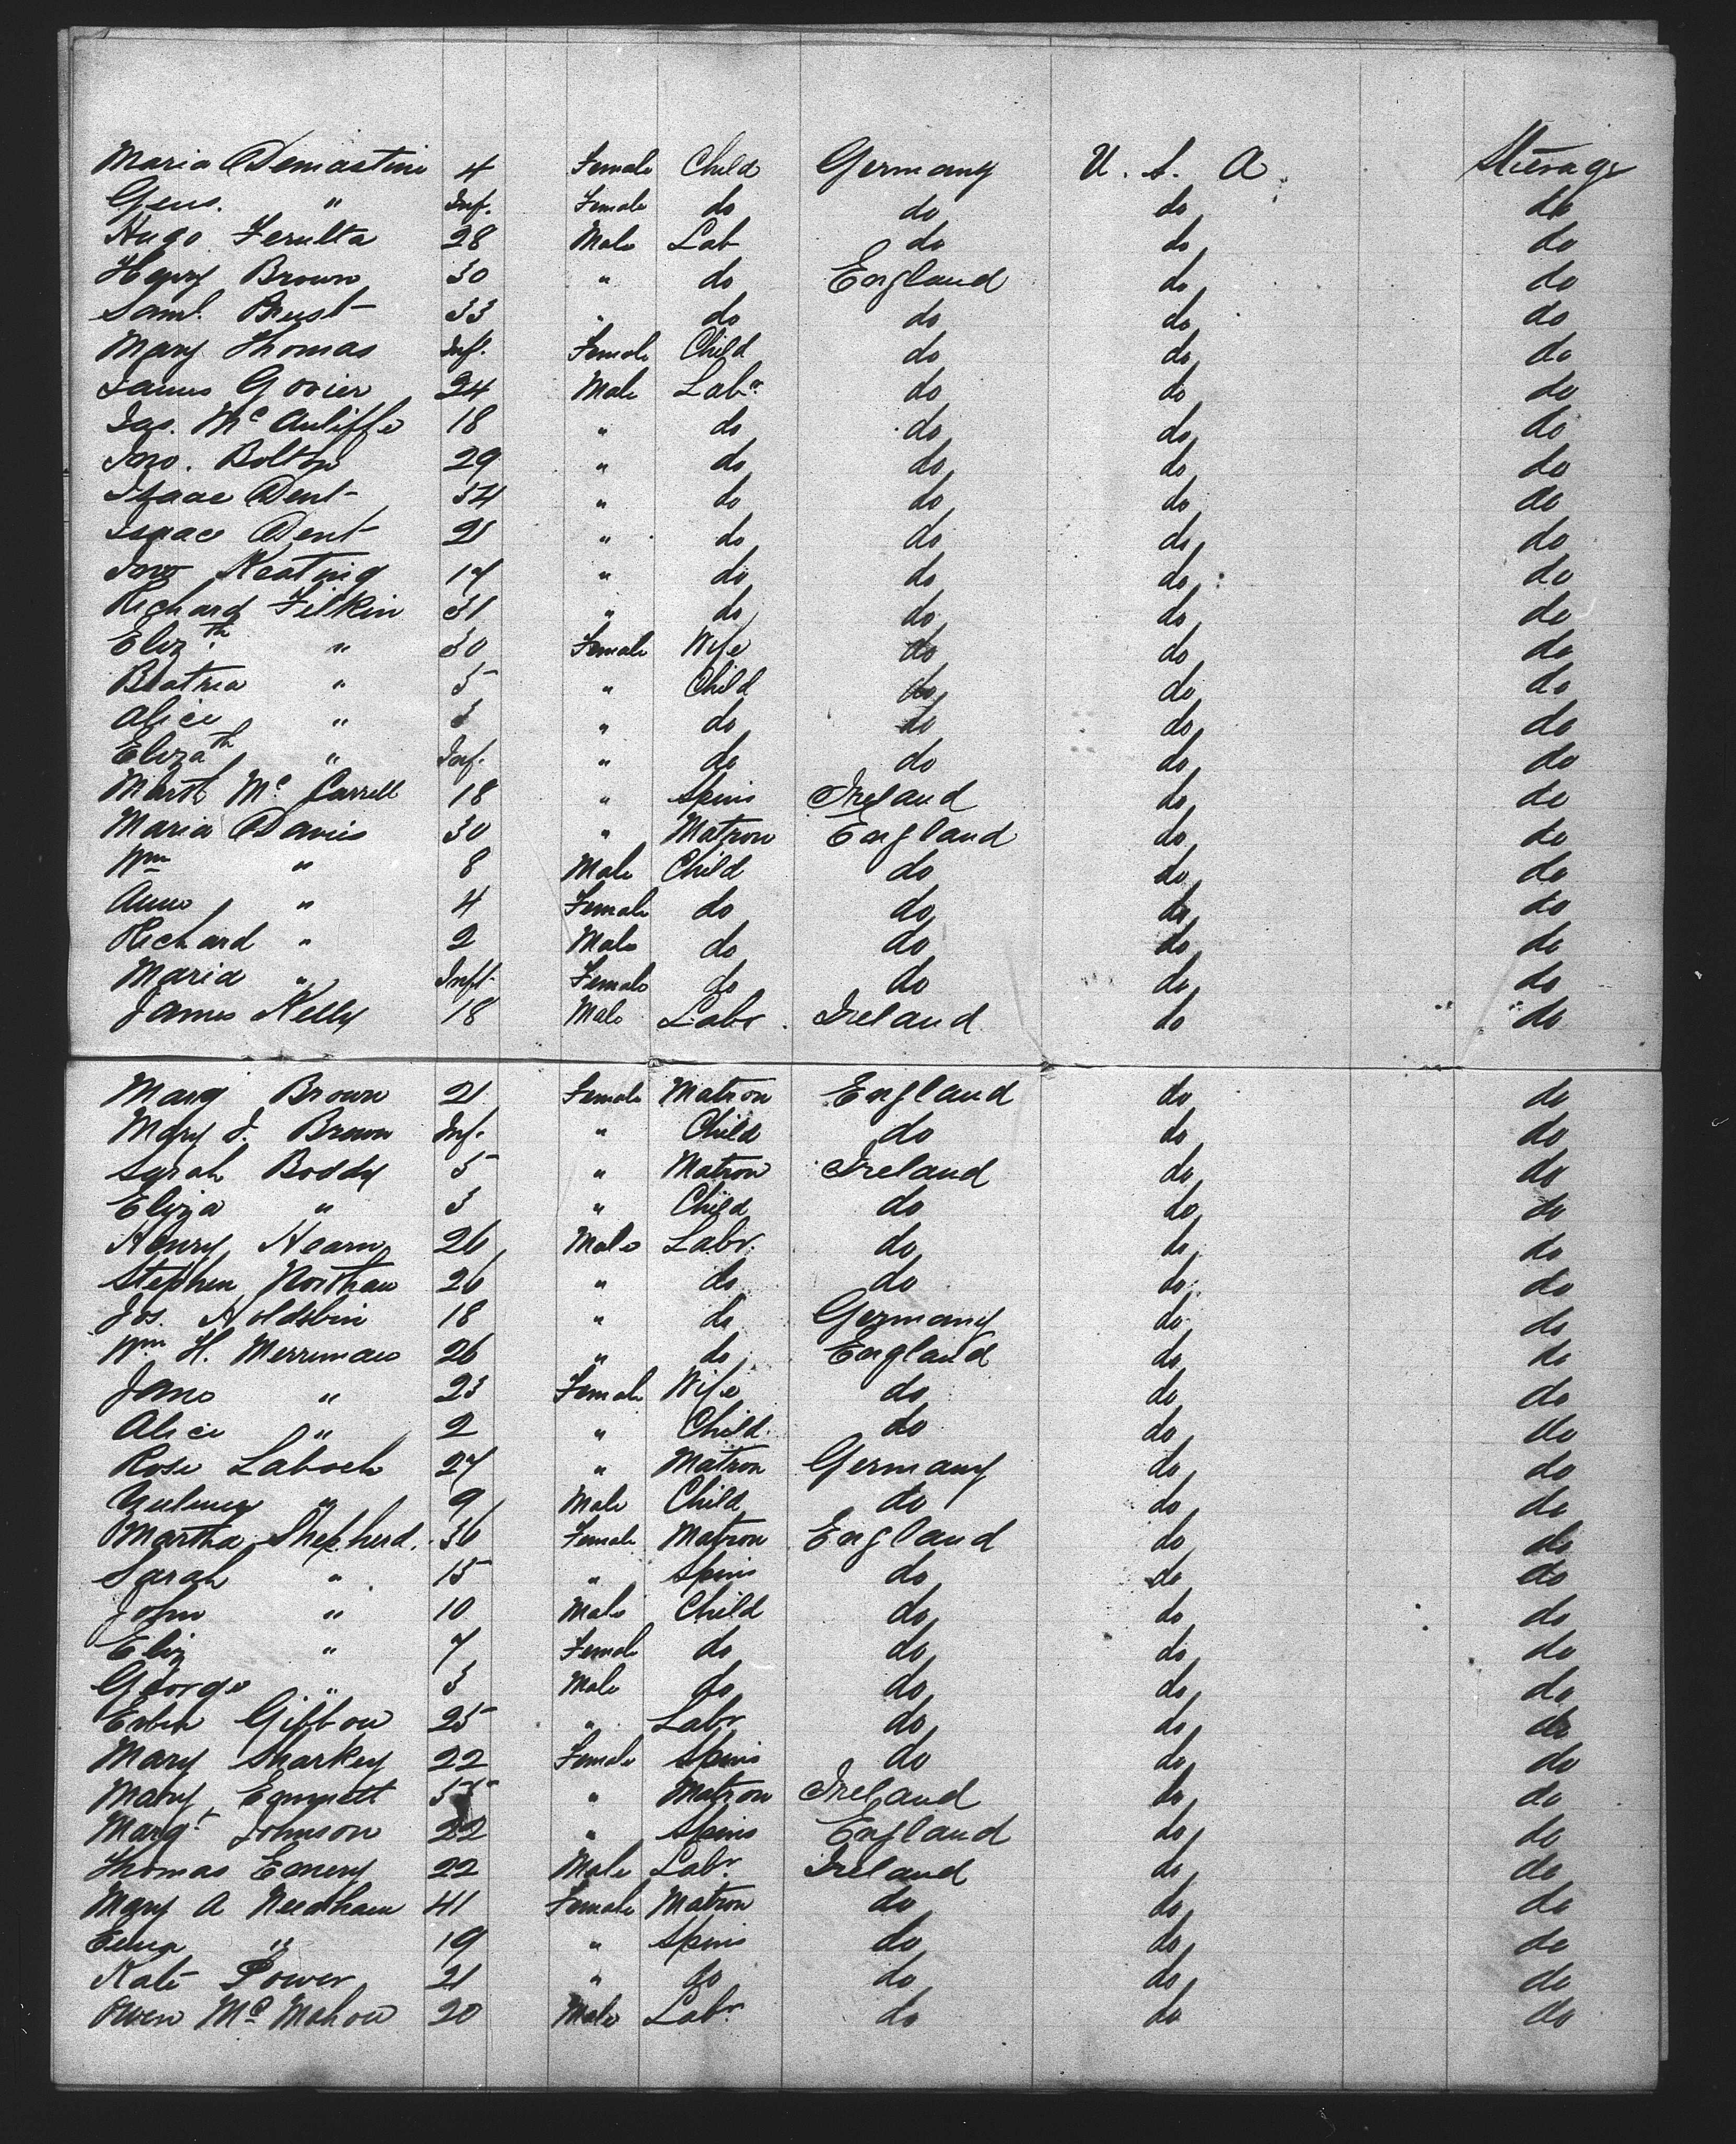 Maria Demastini 4 Female Child Germany U. S. A. Steerage
Geno. " Inf. Female do do do do
Hugo Ferulta 28 Male Lab do do do
Henry Brown 30 " do England do do
Saml. Brust 33 " do do do do
Mary Thomas Inf. Female Child do do do
James Govier 24 Male Labr. do do do
Jas. McAuliffe 18 " do do do do
Jno. Bolton 29 " do do do do
Isaac Dent 34 " do do do do
Isaac Dent 21 " do do do do
Jno Keating 17 " do do do do
Richard Filkin 31 " do do do do
Elizth " 30 Female Wife do do do
Beatria " 5 " Child do do do
Alice " 3 " do do do do
Elizath " Inf. " do do do do
Marth McCarrell 18 " Spins Ireland do do
Maria Davis 30 " Matron England do do
Wm " 8 Male Child do do do
Anne " 4 Female do do do do
Richard " 2 Male do do do do
Maria " Inft. Female do do do do
James Kelly 18 Male Labr. Ireland do do
Marg Brown 21 Female Matron England do do
Mary J. Brown Inf. " Child do do do
Sarah Boddy 5 " Matron Ireland do do
Eliza " 3 " Child do do do
Henry Hearn 26 Male Labr. do do do
Stephen Northan 26 " do do do do
Jos. Holdsbin 18 " do Germany do do
Wm H. Merriman 26 " do England do do
Jane " 23 Female Wife do do do
Alice " 2 " Child do do do
Rose Laboch 27 " Matron Germany do do
" 9 Male Child do do do
Martha Shepherd. 36 Female Matron England do do
Sarah " 15 " Spins do do do
John " 10 Male Child do do do
Eliz " 7 Female do do do do
George " 3 Male do do do do
Gibbon 25 " Labr do do do
Mary Sharkey 22 Female Spins do do do
Mary Emmett " Matron Ireland do do
Margt Johnson 22 " Spins England do do
Thomas Emery 22 Male Labr. Ireland do do
Mary A Needham 41 Female Matron do do do
Emma " 19 " Spins do do do
Kate Power 21 " do do do do
Owen McMahon 20 Male Labr. do do do